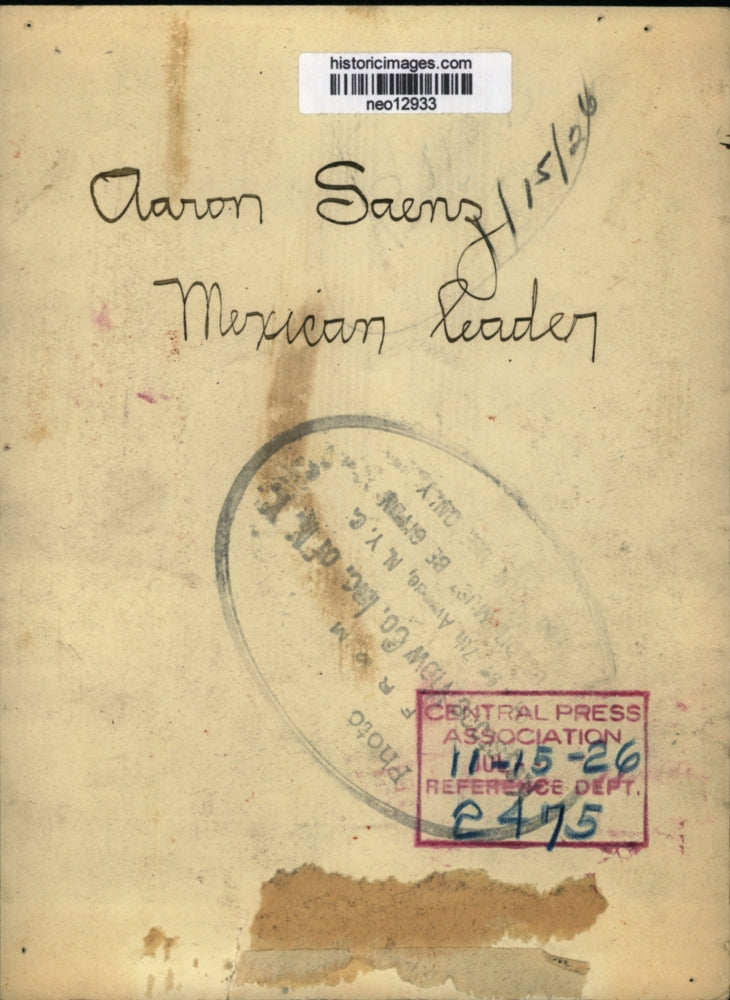 historicimages.com
neo12933
Aaron Saenz
11/15/26
Mexican leader
Photo
FROM
View Co. Inc. of N.Y.
7th Avenue, N.Y.C.
MUST BE GIVEN
USE ONLY
CENTRAL PRESS
ASSOCIATION
11-15-26
REFERENCE DEPT.
2475